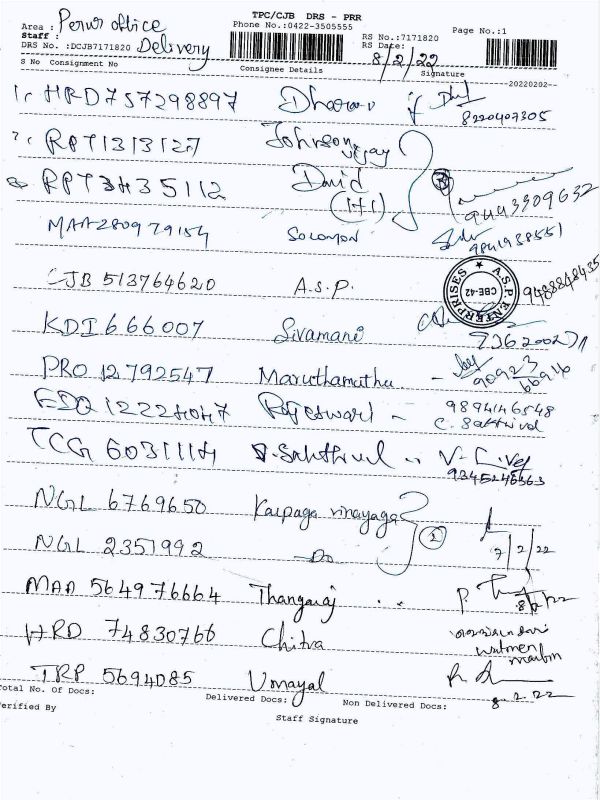 TPC/CJB DRS - PRR
Area : Perur office
Phone No.:0422-3505555
Page No.:1
Staff :
RS No.:7171820
DRS No. :DCJB7171820 Delivery
RS Date: 8/2/22
S No Consignment No Consignee Details Signature
20220202
1 HRD757298897
8220407305
RPT1313127 Johnson vijay
RPT3435112 David
(141) 9443309632
MAA280979154 SOLOMON 9841938551
CJB 513764620 A.S.P. A.S.P. ENTERPRISES CBE-42 9488848435
KDI 666007 Sivamani
PRO 12792547 Maruthamuthu - 90923 66946
Rajeswari - 9894146548
C. Sakthivel
TCG 6031114 9345246363
NGL 6769650 Karpaga vinayaga
NGL 2351992 Do 7/2/22
MAA 564976664 Thangaraj 8/2/22
HRD 74830766 Chitra
TRP 5694085 Umayal
Total No. Of Docs: Delivered Docs: Non Delivered Docs: 8.2.22
Verified By
Staff Signature